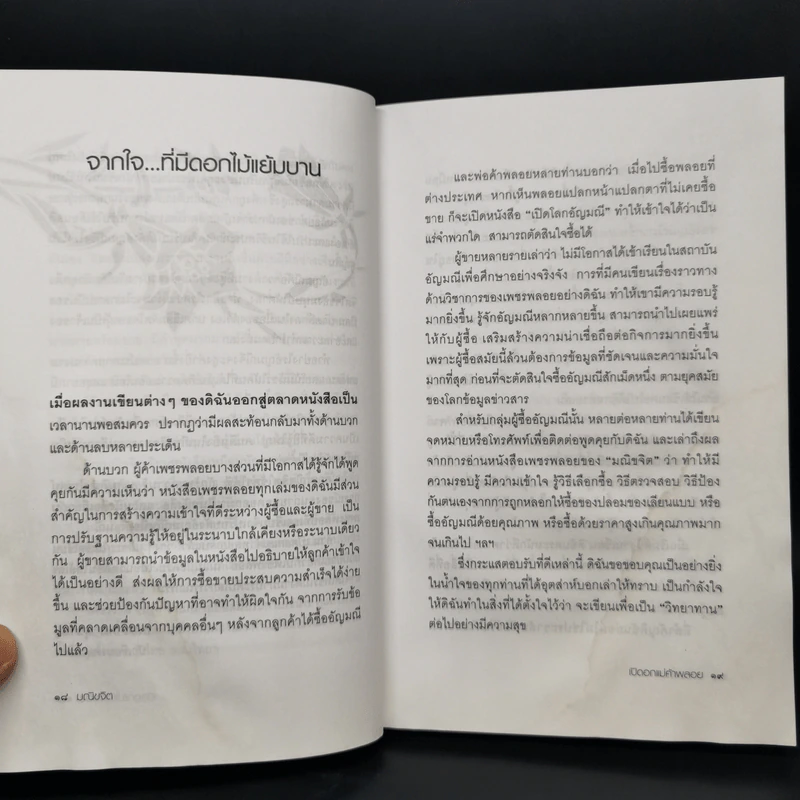 จากใจ...ที่มีดอกไม้แย้มบาน
เมื่อผลงานเขียนต่างๆ ของดิฉันออกสู่ตลาดหนังสือเป็น
เวลานานพอสมควร ปรากฏว่ามีผลสะท้อนกลับมาทั้งด้านบวก
และด้านลบหลายประเด็น
ด้านบวก ผู้ค้าเพชรพลอยบางส่วนที่มีโอกาสได้รู้จักได้พูด
คุยกันมีความเห็นว่า หนังสือเพชรพลอยทุกเล่มของดิฉันมีส่วน
สำคัญในการสร้างความเข้าใจที่ดีระหว่างผู้ซื้อและผู้ขาย เป็น
การปรับฐานความรู้ให้อยู่ในระนาบใกล้เคียงหรือระนาบเดียว
กัน ผู้ขายสามารถนำข้อมูลในหนังสือไปอธิบายให้ลูกค้าเข้าใจ
ได้เป็นอย่างดี ส่งผลให้การซื้อขายประสบความสำเร็จได้ง่าย
ขึ้น และช่วยป้องกันปัญหาที่อาจทำให้ผิดใจกัน จากการรับข้อ
มูลที่คลาดเคลื่อนจากบุคคลอื่นๆ หลังจากลูกค้าได้ซื้ออัญมณี
ไปแล้ว
๑๘ มณิขจิต
และพ่อค้าพลอยหลายท่านบอกว่า เมื่อไปซื้อพลอยที่
ต่างประเทศ หากเห็นพลอยแปลกหน้าแปลกตาที่ไม่เคยซื้อ
ขาย ก็จะเปิดหนังสือ “เปิดโลกอัญมณี” ทำให้เข้าใจได้ว่าเป็น
แร่จำพวกใด สามารถตัดสินใจซื้อได้
ผู้ขายหลายรายเล่าว่า ไม่มีโอกาสได้เข้าเรียนในสถาบัน
อัญมณีเพื่อศึกษาอย่างจริงจัง การที่มีคนเขียนเรื่องราวทาง
ด้านวิชาการของเพชรพลอยอย่างดิฉัน ทำให้เขามีความรอบรู้
มากยิ่งขึ้น รู้จักอัญมณีหลากหลายขึ้น สามารถนำไปเผยแพร่
ให้กับผู้ซื้อ เสริมสร้างความน่าเชื่อถือต่อกิจการมากยิ่งขึ้น
เพราะผู้ซื้อสมัยนี้ล้วนต้องการข้อมูลที่ชัดเจนและความมั่นใจ
มากที่สุด ก่อนที่จะตัดสินใจซื้ออัญมณีสักเม็ดหนึ่ง ตามยุคสมัย
ของโลกข้อมูลข่าวสาร
สำหรับกลุ่มผู้ซื้ออัญมณีนั้น หลายต่อหลายท่านได้เขียน
จดหมายหรือโทรศัพท์เพื่อติดต่อพูดคุยกับดิฉัน และเล่าถึงผล
จากการอ่านหนังสือเพชรพลอยของ “มณิขจิต” ว่า ทำให้มี
ความรอบรู้ มีความเข้าใจ รู้วิธีเลือกซื้อ วิธีตรวจสอบ วิธีป้อง
กันตนเองจากการถูกหลอกให้ซื้อของปลอมของเลียนแบบ หรือ
ซื้ออัญมณีด้อยคุณภาพ หรือซื้อด้วยราคาสูงเกินคุณภาพมาก
จนเกินไป ฯลฯ
ซึ่งกระแสตอบรับที่ดีเหล่านี้ ดิฉันขอขอบคุณเป็นอย่างยิ่ง
ในน้ำใจของทุกท่านที่ได้อุตส่าห์บอกเล่าให้ทราบ เป็นกำลังใจ
ให้ดิฉันทำในสิ่งที่ได้ตั้งใจไว้ว่า จะเขียนเพื่อเป็น “วิทยาทาน”
ต่อไปอย่างมีความสุข
เปิดอกแม่ค้าพลอย ๑๙